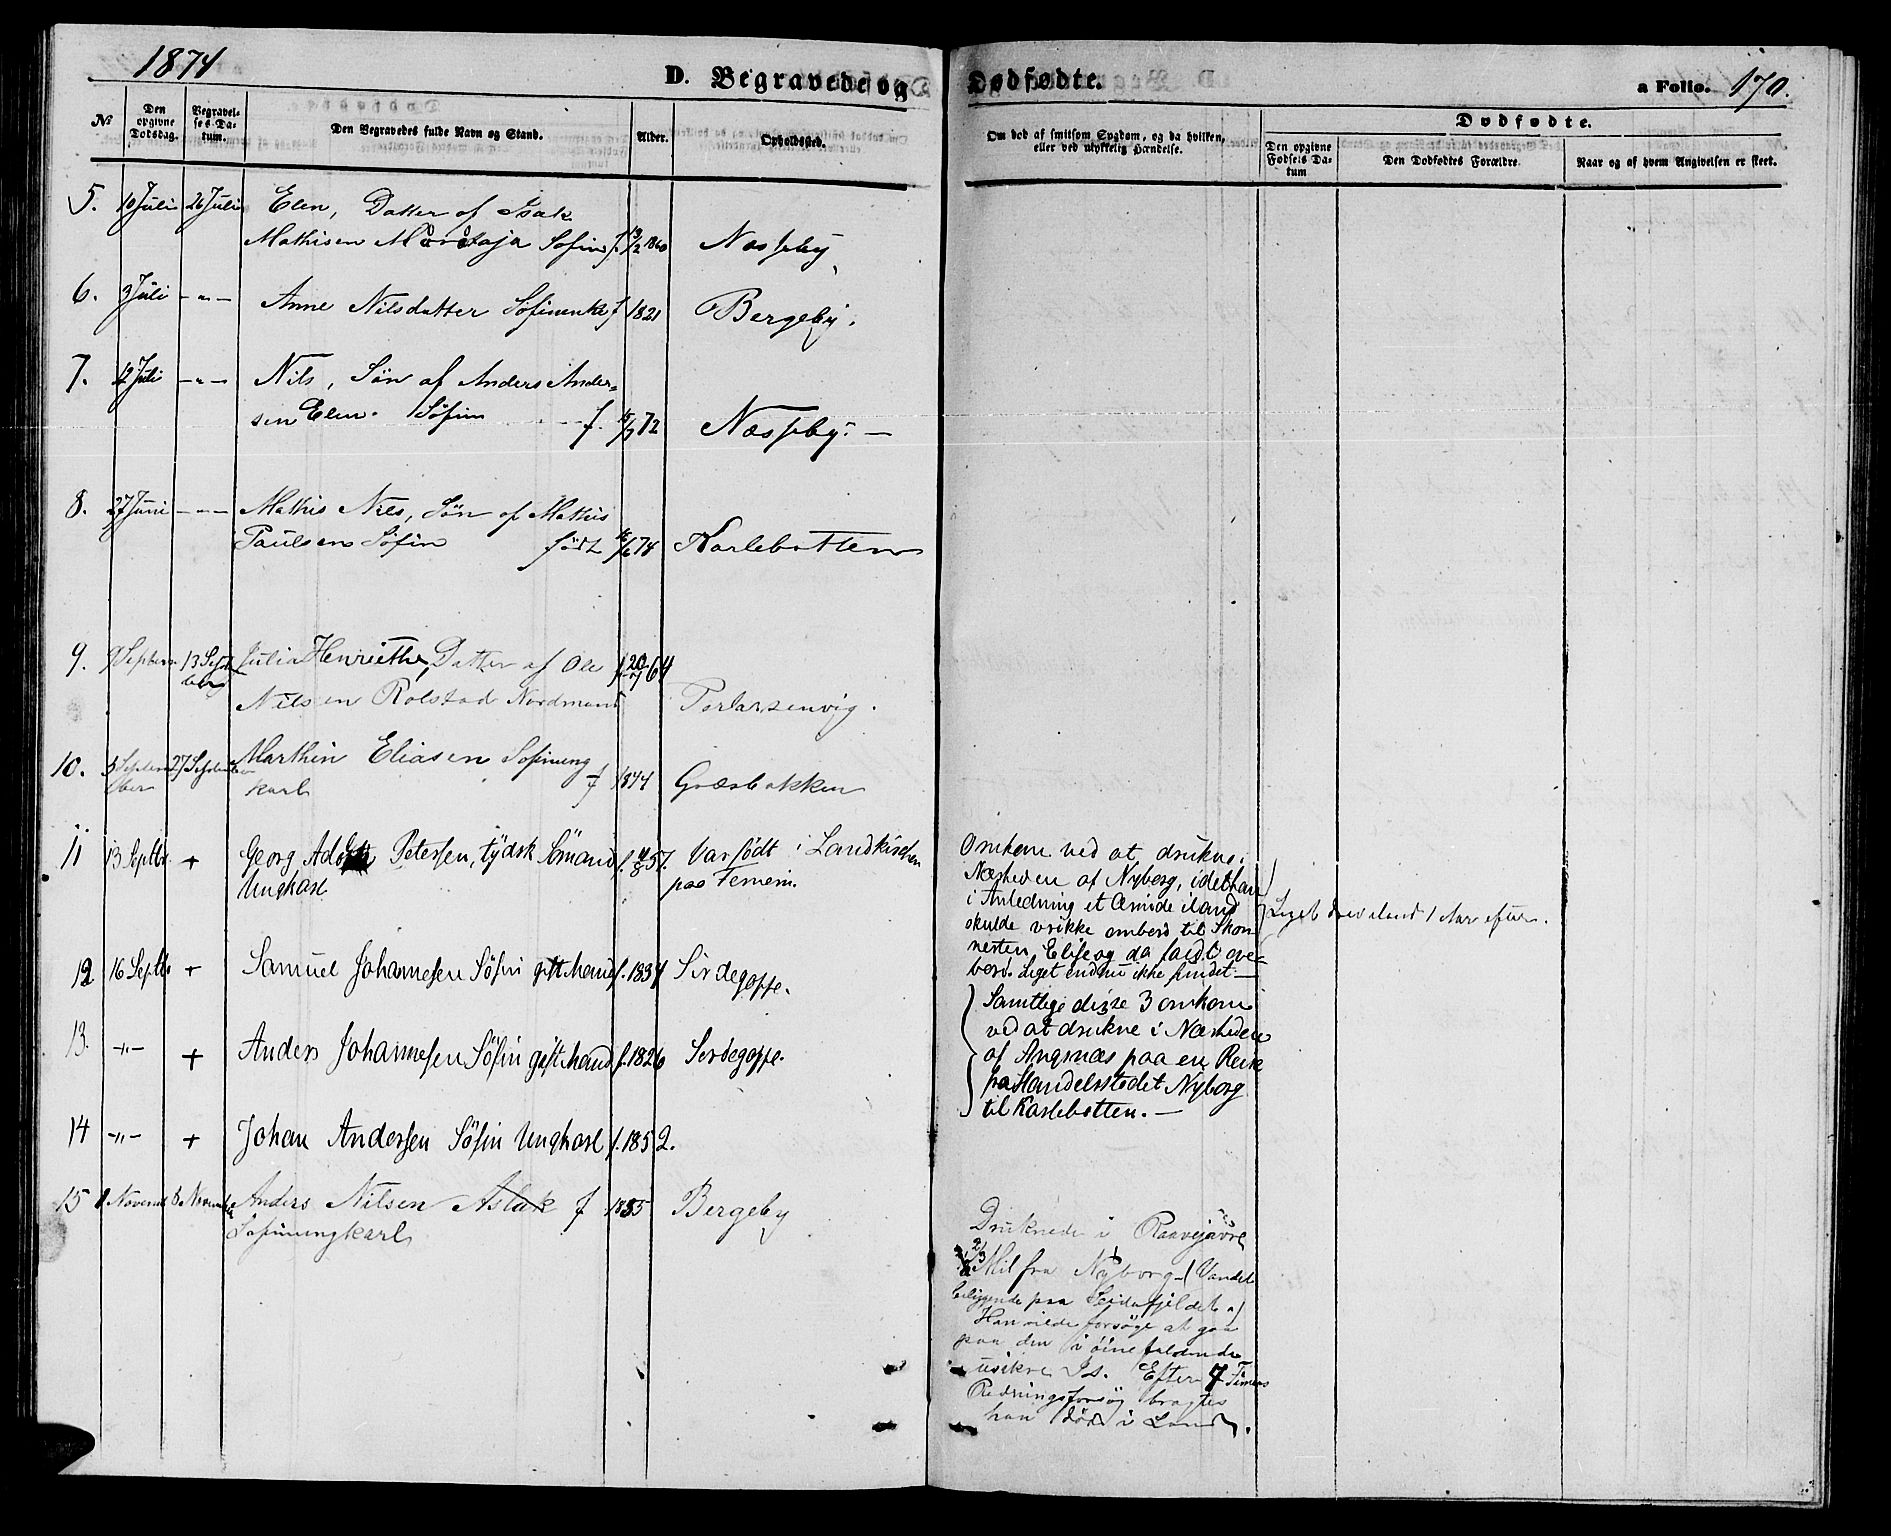 1874
D. Begravede og Dødfødte. a Folio. 170.
No Den opgivne Dødsdag. Begravelses-Datum. Den Begravedes fulde Navn og Stand. Alder. Opholdssted. Om død af smitsom Sygdom, og da hvilken, eller ved ulykkelig Hændelse. Dødfødte.
Den opgivne Fødsels Datum Den Dødfødtes Forældre. Naar og af hvem Angivelsen er skeet.
5. 10 Juli 26 Juli Elen, Datter af Isak
Mathisen Söfin f 13/2 1860 Næsseby
6. 3 Juli -"- Anne Nilsdatter Söfinenke f 1821 Bergeby.
7. 12 Juli -"- Nils, Sön af Anders Ander-
sen Elen. Söfin f. 72 Næsseby. —
8. 27 Juni -"- Mathis Nils, Sön af Mathis
Paulsen Söfin födt /6 74 Karlebotten
9. 9 Septem 13 Septber Julia Henriethe, Datter af Ole f 20/7 64
Nilsen Rolstad Nordmand Perlarsenvig.
10. 3 September 27 September Marthin Eliasen Sofinung
karl f 1844 Græsbakken
11 13 Septbr. + Georg Adolph Petersen, tydsk Sömand f. 57. Var födt i Landkirchen
Ungkarl paa Femern.
Omkom ved at drukne i
Nærheden af Nyborg, idet han
i Anledning et Æmide iland
skulde vrikke ombord til Skon-
nerten Elise og da faldt over-
bord. Liget endnu ikke fundet. —
Liget drev iland 1 Aar efter.
12 16 Septbr + Samuel Johannesen Söfin gift Mand f. 1834 Sirdegoppe.
13. -"- + Anders Johannesen Söfin gift Mand f. 1826 Serdegoppe.
14 -"- + Johan Andersen Söfin Ungkarl f. 1852.
Samtlige disse 3 omkom
ved at drukne i Nærheden
af Angsnæs paa en Reise
fra Handelsstedet Nyborg
til Karlebotten. —
15 November Anders Nilsen Aslak f Bergeby
Sofinungkarl
Druknede i Raavejavre
Mil fra Nyborg (Vandet
beliggende paa Seidafjeldet)
Han vilde forsøge at gaa
paa den i öine faldende
usikre Is. Efter 7 Timers
Redningsforsög bragtes
han död i Land.